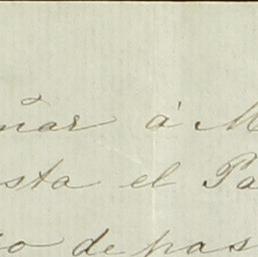 ñar á M
sta el Pa
io de pas